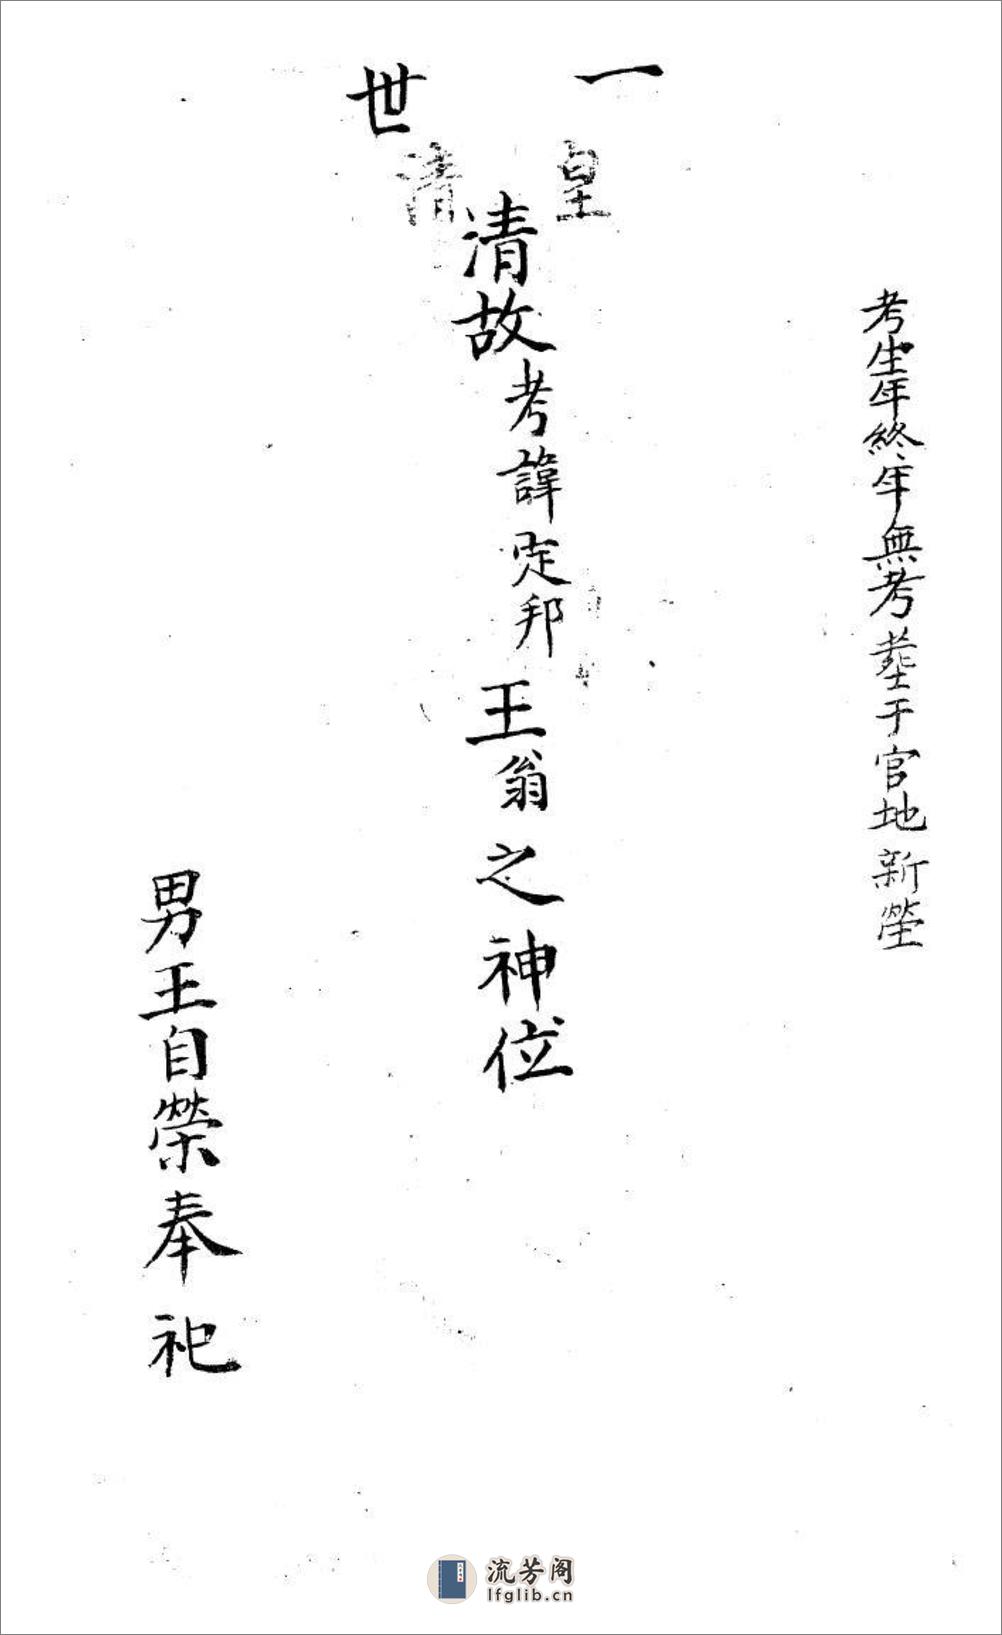 考生年終年無考塟于官地新塋
一世
皇清
清故考諱定邦王翁之神位
男王自榮奉祀
流芳阁
lfglib.cn